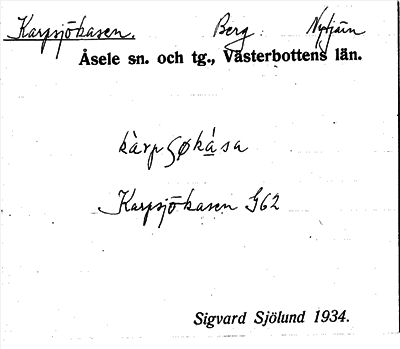 Karpsjökasen. Berg. Nytjärn
Åsele sn. och tg., Västerbottens län.
kàrpʃøkása
Karpsjökasen G62
Sigvard Sjölund 1934.